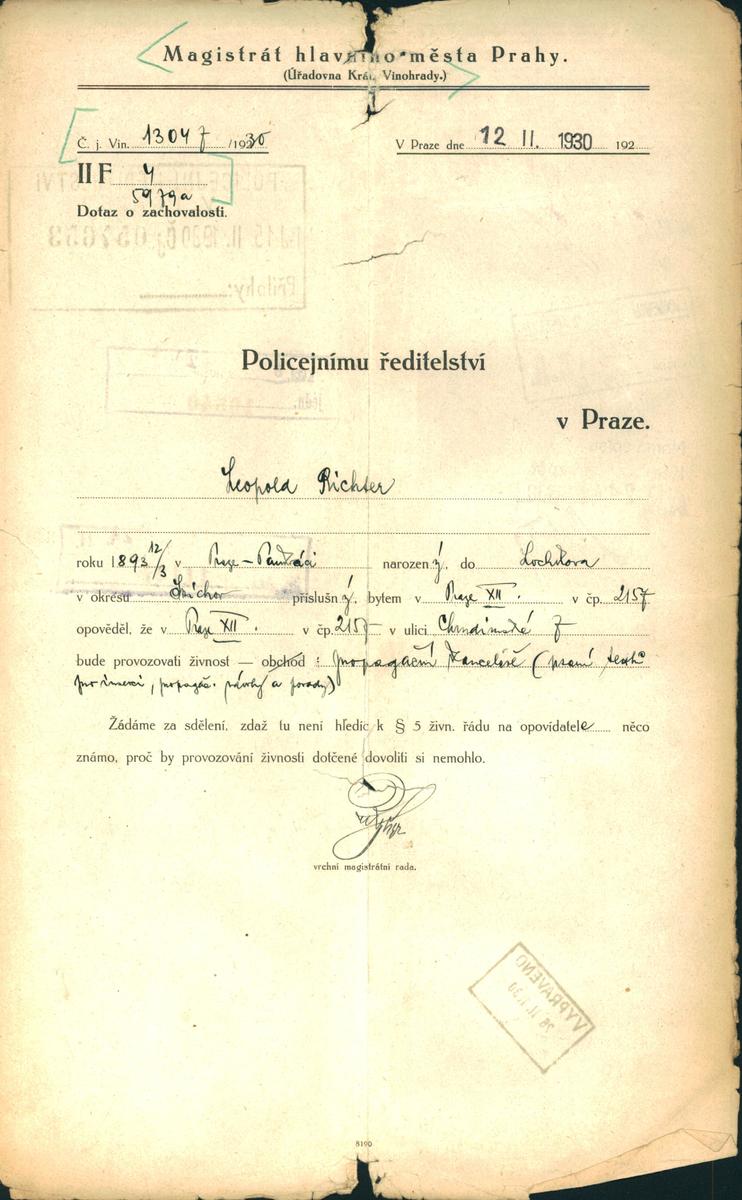 Magistrát hlavního města Prahy.
(Úřadovna Král. Vinohrady.)
Č. j. Vin. 13047 /1930
V Praze dne 12 II. 1930 192
II F 4
5979a
Dotaz o zachovalosti.
Policejnímu ředitelství
v Praze.
Leopold Richter
roku 1893 12/3 v Praze – Pankráci narozený, do
v okresu příslušný, bytem v Praze XII. v čp. 2157
opověděl, že v Praze XII. v čp. 2157 v ulici Chrudimské 7
bude provozovati živnost — obchod : propagační kancelář (psaní textů
pro inserci, propagač. návrhy a porady)
Žádáme za sdělení, zdaž tu není hledíc k § 5 živn. řádu na opovídatele něco
známo, proč by provozování živnosti dotčené dovoliti si nemohlo.
vrchní magistrátní rada.
VYPRAVENO
26. II. 1930
8190